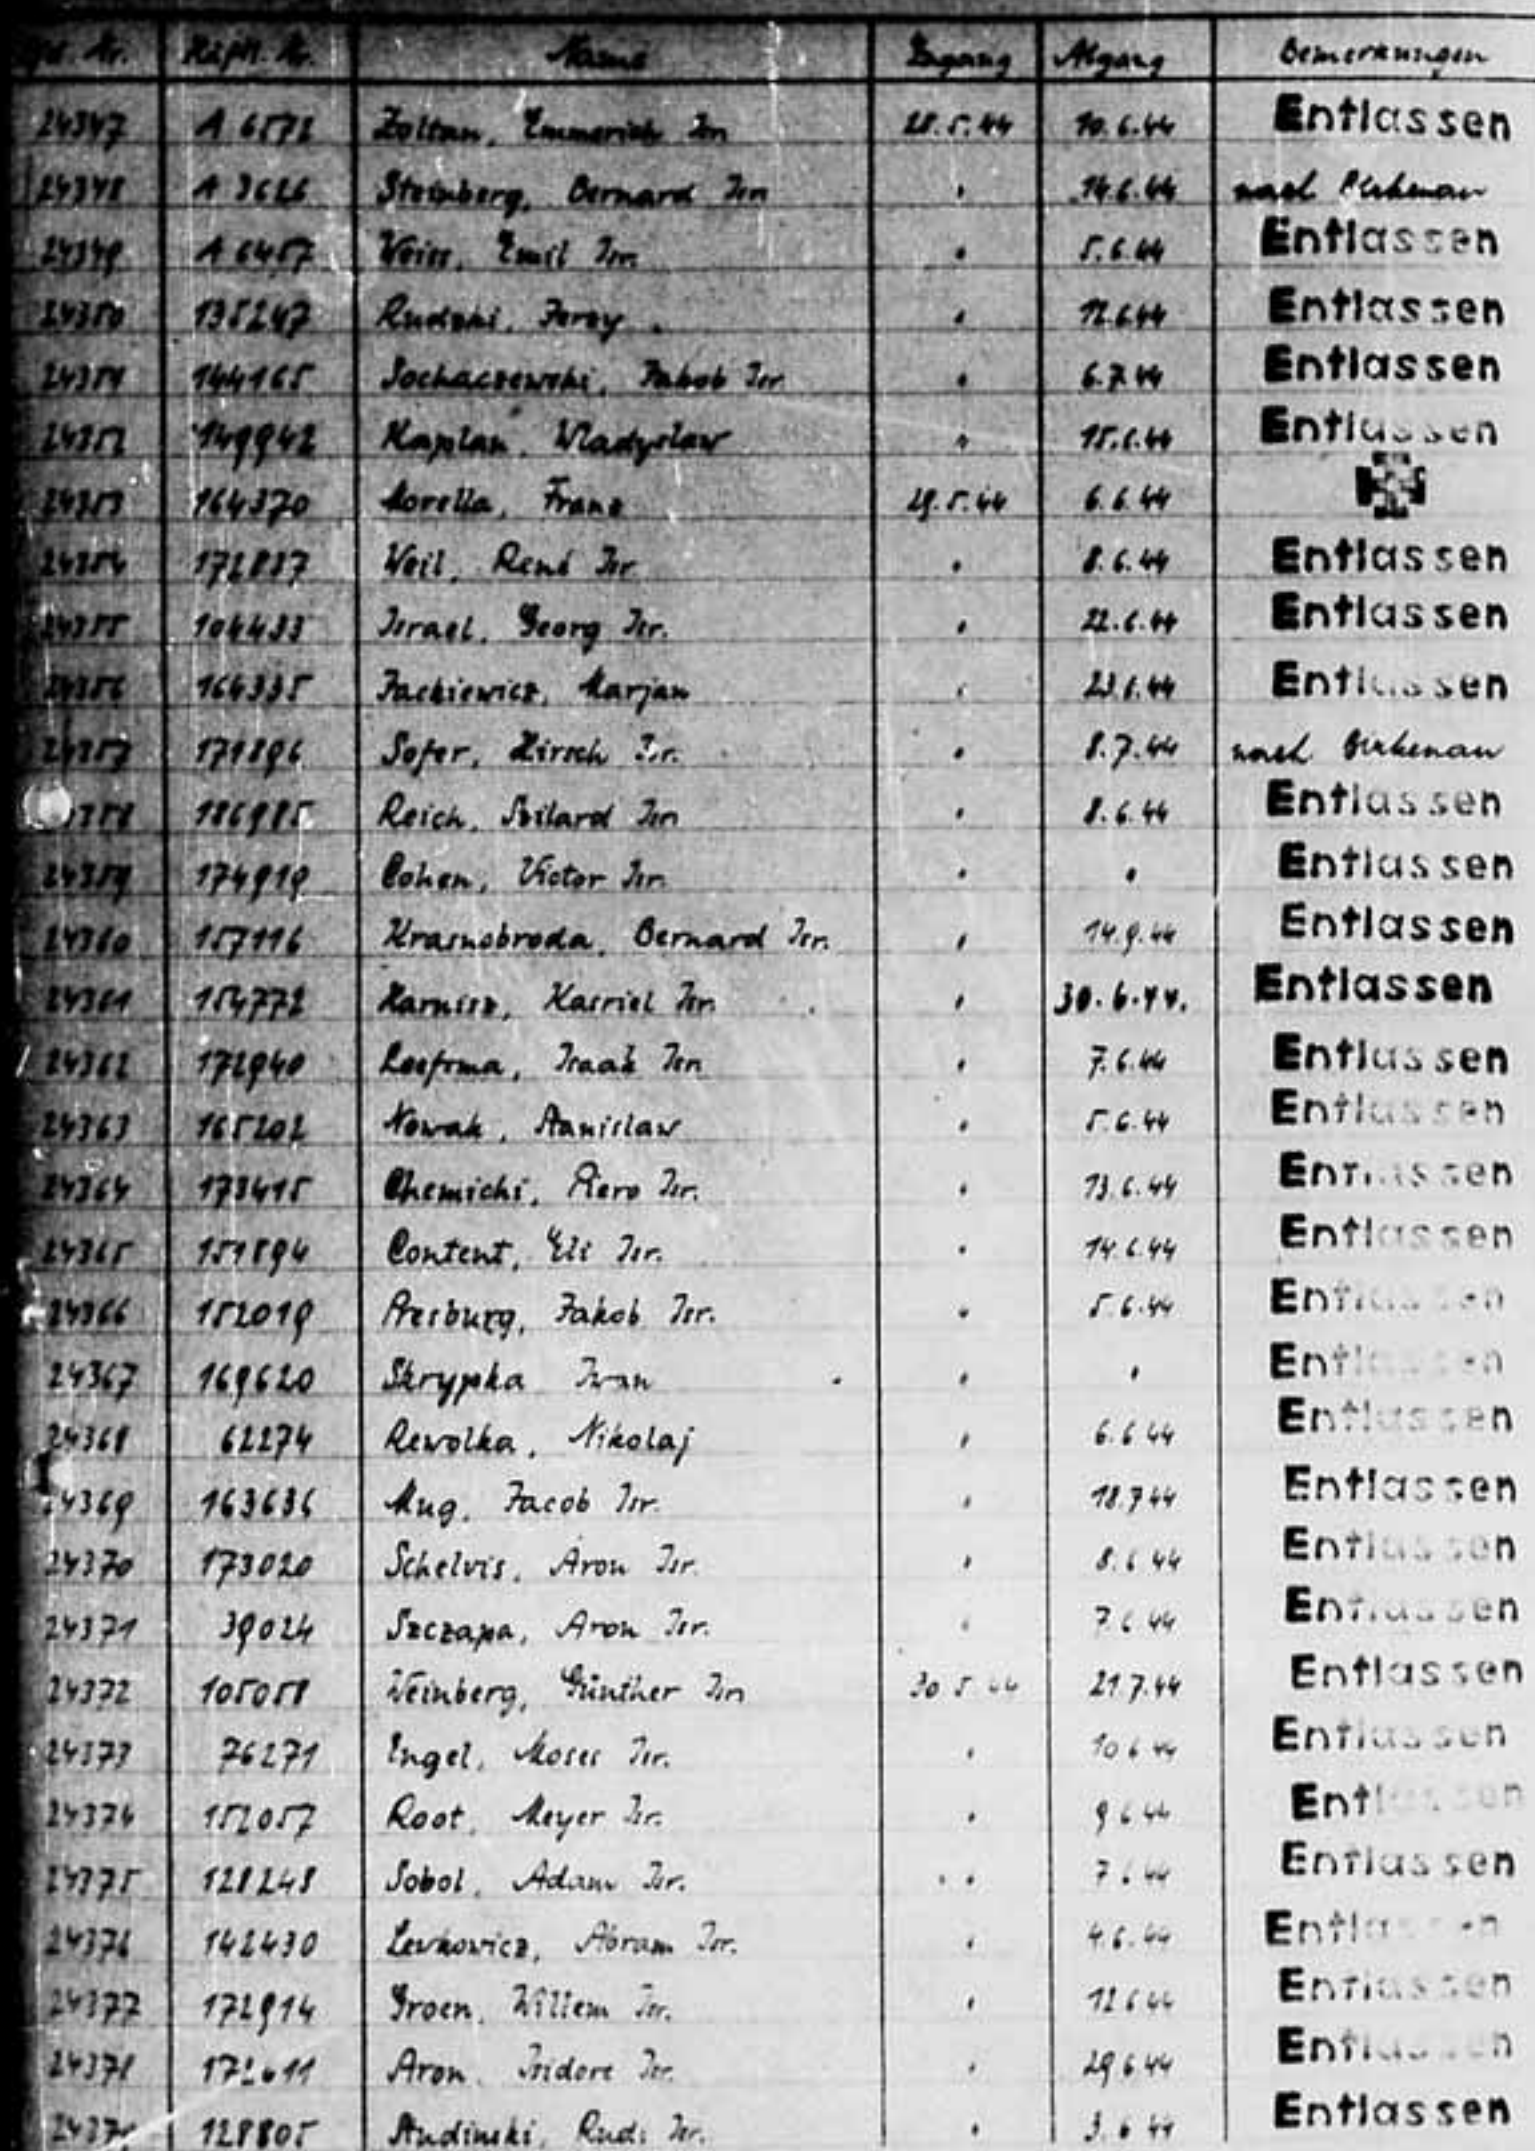 Lfd. Nr. Häftl. Nr. Name Zugang Abgang Bemerkungen
24347 A 6572 Zoltan, Emmerich Isr. 28.5.44 10.6.44 Entlassen
24348 A 3626 Steinberg, Bernard Isr. " 14.6.44 nach Birkenau
24349 A 6457 Weiss, Emil Isr. " 5.6.44 Entlassen
24350 135247 Rudzki, Jerzy " 12.6.44 Entlassen
24351 144165 Sochaczewski, Jakob Isr. " 6.7.44 Entlassen
24352 149942 Kaplan, Wladyslaw " 15.6.44 Entlassen
24353 164370 Morella, Franz 29.5.44 6.6.44
24354 172837 Weil, René Isr. " 8.6.44 Entlassen
24355 104433 Israel, Georg Isr. " 22.6.44 Entlassen
24356 164335 Jackiewicz, Marjan " 23.6.44 Entlassen
24357 171896 Sofer, Hirsch Isr. " 8.7.44 nach Birkenau
24358 186985 Reich, Szilard Isr. " 8.6.44 Entlassen
24359 174919 Cohen, Victor Isr. " " Entlassen
24360 157116 Krasnobroda, Bernard Isr. " 14.9.44 Entlassen
24361 154772 Harnisz, Kasriel Isr. " 30.6.44. Entlassen
24362 172940 Leefsma, Isaak Isr. " 7.6.44 Entlassen
24363 165202 Nowak, Stanislaw " 5.6.44 Entlassen
24364 173415 Chemichi, Piero Isr. " 13.6.44 Entlassen
24365 151894 Content, Eli Isr. " 14.6.44 Entlassen
24366 152019 Presburg, Jakob Isr. " 5.6.44 Entlassen
24367 169620 Skrypka Iwan " " Entlassen
24368 62274 Rewolka, Nikolaj " 6.6.44 Entlassen
24369 163636 Mug, Jacob Isr. " 18.7.44 Entlassen
24370 173020 Schelvis, Aron Isr. " 8.6.44 Entlassen
24371 39024 Szczapa, Aron Isr. " 7.6.44 Entlassen
24372 105058 Weinberg, Günther Isr. 30.5.44 21.7.44 Entlassen
24373 76271 Engel, Moses Isr. " 10.6.44 Entlassen
24374 152057 Root, Meyer Isr. " 9.6.44 Entlassen
24375 128248 Sobol, Adam Isr. " 7.6.44 Entlassen
24376 142430 Lewkowicz, Abram Isr. " 4.6.44 Entlassen
24377 172914 Groen, Willem Isr. " 12.6.44 Entlassen
24378 Aron, Isidore Isr. " 29.6.44 Entlassen
128805 Studinski, Rudi Isr. " 3.6.44 Entlassen